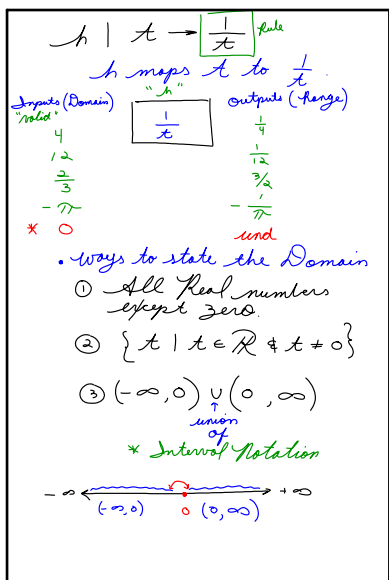 h | t → 1/t Rule
h maps t to 1/t.
Inputs (Domain) "h" Outputs (Range)
"valid" 1/t
4 1/4
12 1/12
2/3 3/2
-π -1/π
* 0 und
• Ways to state the Domain
① All Real numbers
except zero.
② { t | t ∈ ℝ & t ≠ 0 }
③ (-∞, 0) ∪ (0, ∞)
↑
union
of
* Interval Notation
-∞ +∞
(-∞, 0) 0 (0, ∞)